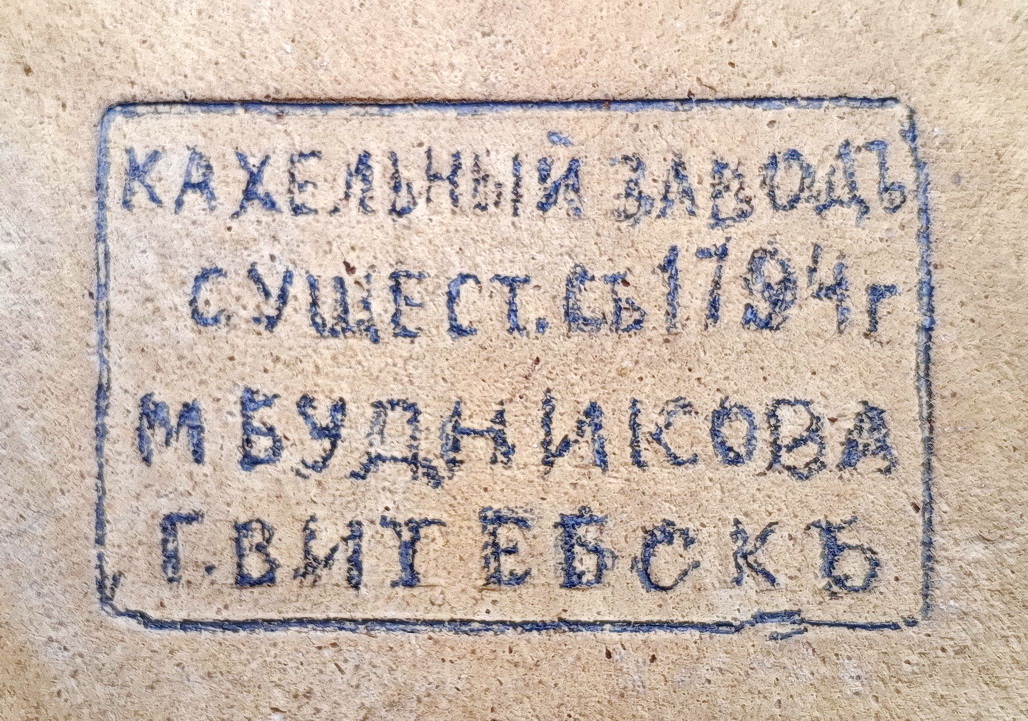 КАХЕЛЬНЫЙ ЗАВОДЪ
СУЩЕСТ. СЪ 1794 г
М БУДНИКОВА
Г. ВИТЕБСКЪ